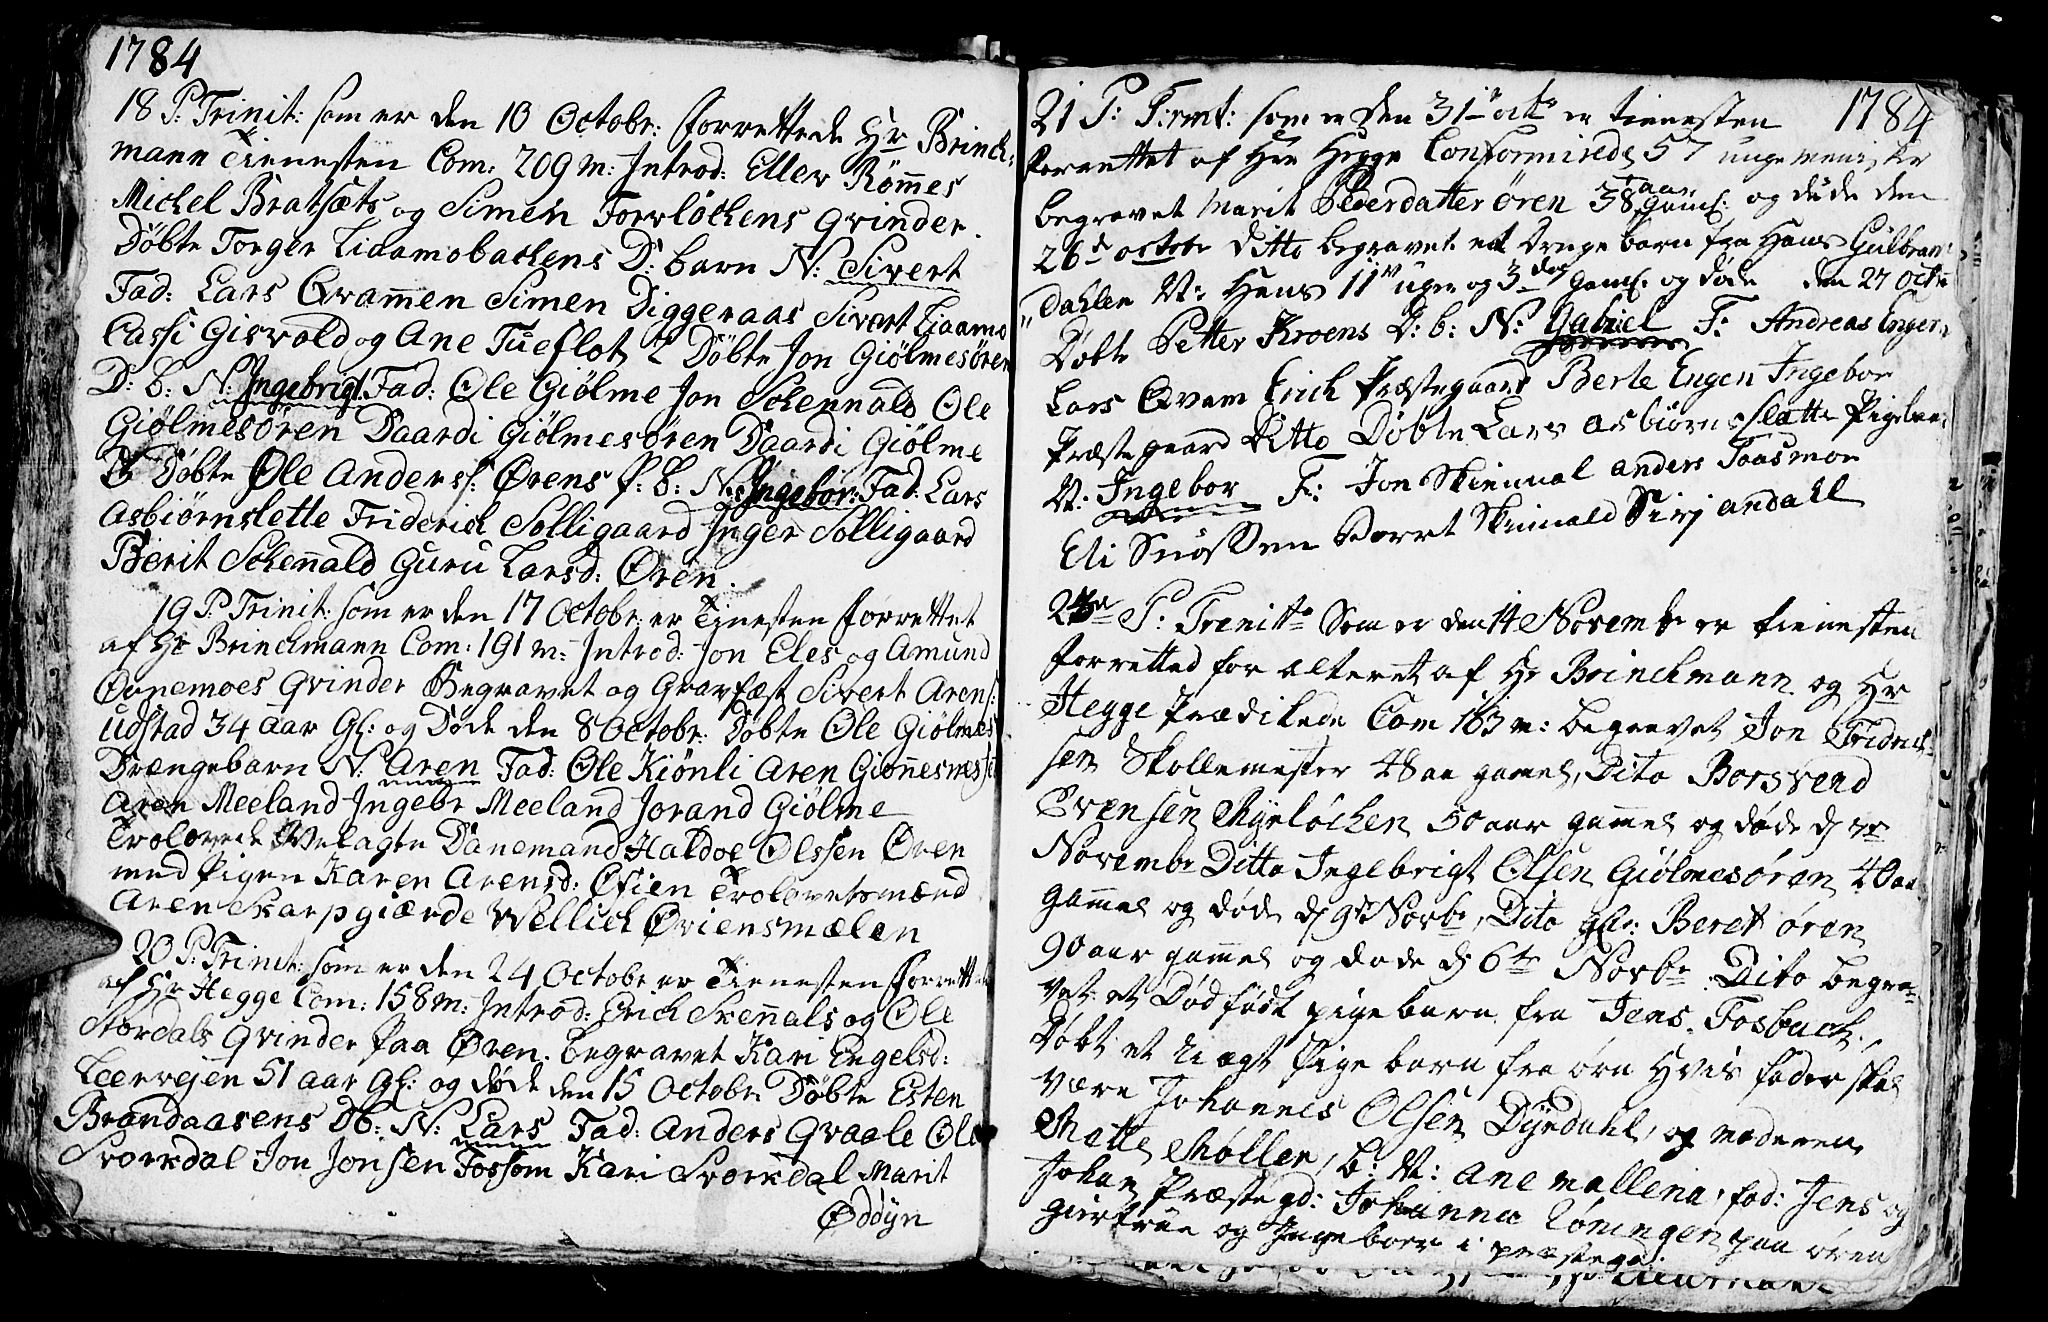 1784
18 P: Trinit: som er den 10 Octobr: forrettede Hr Brinck:
mann Tienesten Com: 209 m: Introd: Eller Römmes
Michel Bratsæts og Simen Forrløckens Qvinder.
Døbte Torger Liaamobackens D: barn N: Sivert
Fad: Lars Qvamen Simen Diggeraas Sivert Liaamo
Lassi Gisvold og Ane Tueflot & Døbte Jon Giølmesøren
D: B: N: Ingebrigt Fad: Ole Giölme Jon Schennald Ole
Giølmesøren Daardi Giølmesøren Daardi Giølme
& Døbte Ole Anders: Ørens P: B: N: Ingebor: Fad: Lars
Asbiørnslette Friderich Solligaard Inger Solligaard
Berit Schennald Guru Larsd: Øren.
19 P: Trinit: som er den 17 Octobr: er Tienesten forrettet
af Hr Brinckmann Com: 191 m: Introd: Jon Eles og Amund
Ovnemoes Qvinder Begravet og Gravfæst Sivert Arens:
Udstad 34 aar Gl: og Døde den 8 Octobr: Døbte Ole Giølmes
Drængebarn N: Aren Fad: Ole Kiönli Aren Gionnesmess
Aren Meeland Ingebr Meeland Jorand Giølme
Trolovede Velagte Danemand Haldoe Olssen Øren
med Pigen Karen Arensd: Øfien Trolovetsmænd
Aren Skarpgiærde Wellich Øviensmælen
20 P: Trinit: som er den 24 Octobr er Tienesten forrettet
af Hr Hegge Com: 158 m: Introd: Erich Skennals og Ole
Stordals Qvinder paa Øren. begravet Kari Engelsd:
Leerveien 51 aar Gl: og døde den 15 Octobr Døbte Esten
Brandaasens Db: N: Lars Fad: Anders Qvaale Ole
Svorkdal Jon Jonsen Fossom Kari Svorkdal Marit
Oddyn
21 P: Trinit: som er den 31te octr er tienesten 1784
forrettet af Her Hegge Confirmirede 57 unge menisker
begravet Marit Pedersdatter ören 38 aar gaml: og döde den
26d octobr ditto begravet et drenge barn fra Hans Gulbran
dahlen N: Hans 11 uger og 3 dag gaml: og døde den 27 Octbr
Døbte Petter Kroens D: b: N: Gabriel F: Andreas Enger
Lars Qvam Erich Præstegaard Berte Engen Ingebor
Præstegaard Ditto Døbte Lars asbiørnslætte Pigebar:
N: Ingebor F: Jon Skiennal anders Taasmoe
Eli Snössen Borrt Skinnald Siri andahl
P: Trenitts Som er den 14 Novembr er tienesten
forretted for alteret af Hr Brinckmann og Hr
Hegge Prædikede Com 163 m: begravet Jon Fridrich
sen Skollemester 48 aar gamel, Dito Borsvend
Evensen Myrløchen 50 aar gammel og døde d 7r
Novembr Ditto Ingebrigt Olsen Giølmesøren 40 aar
gammel og døde d 9de Novbr, Dito gl: Beret ören
90 aar gammel og døde d 6te Novbr Dito begra
vet et Dødfødt pigebarn fra Jens Fosback,
Døbt et U ægt Pige barn fra örn Hvis fader skal
være Johannes Olsen Dyrdahl, og moderen
Mette Møller, b: N: ane mallena, fad: Jens og
Johan Præstegd: Johanna Löningen paa ören
giertrue og Ingeborr i præstegd: